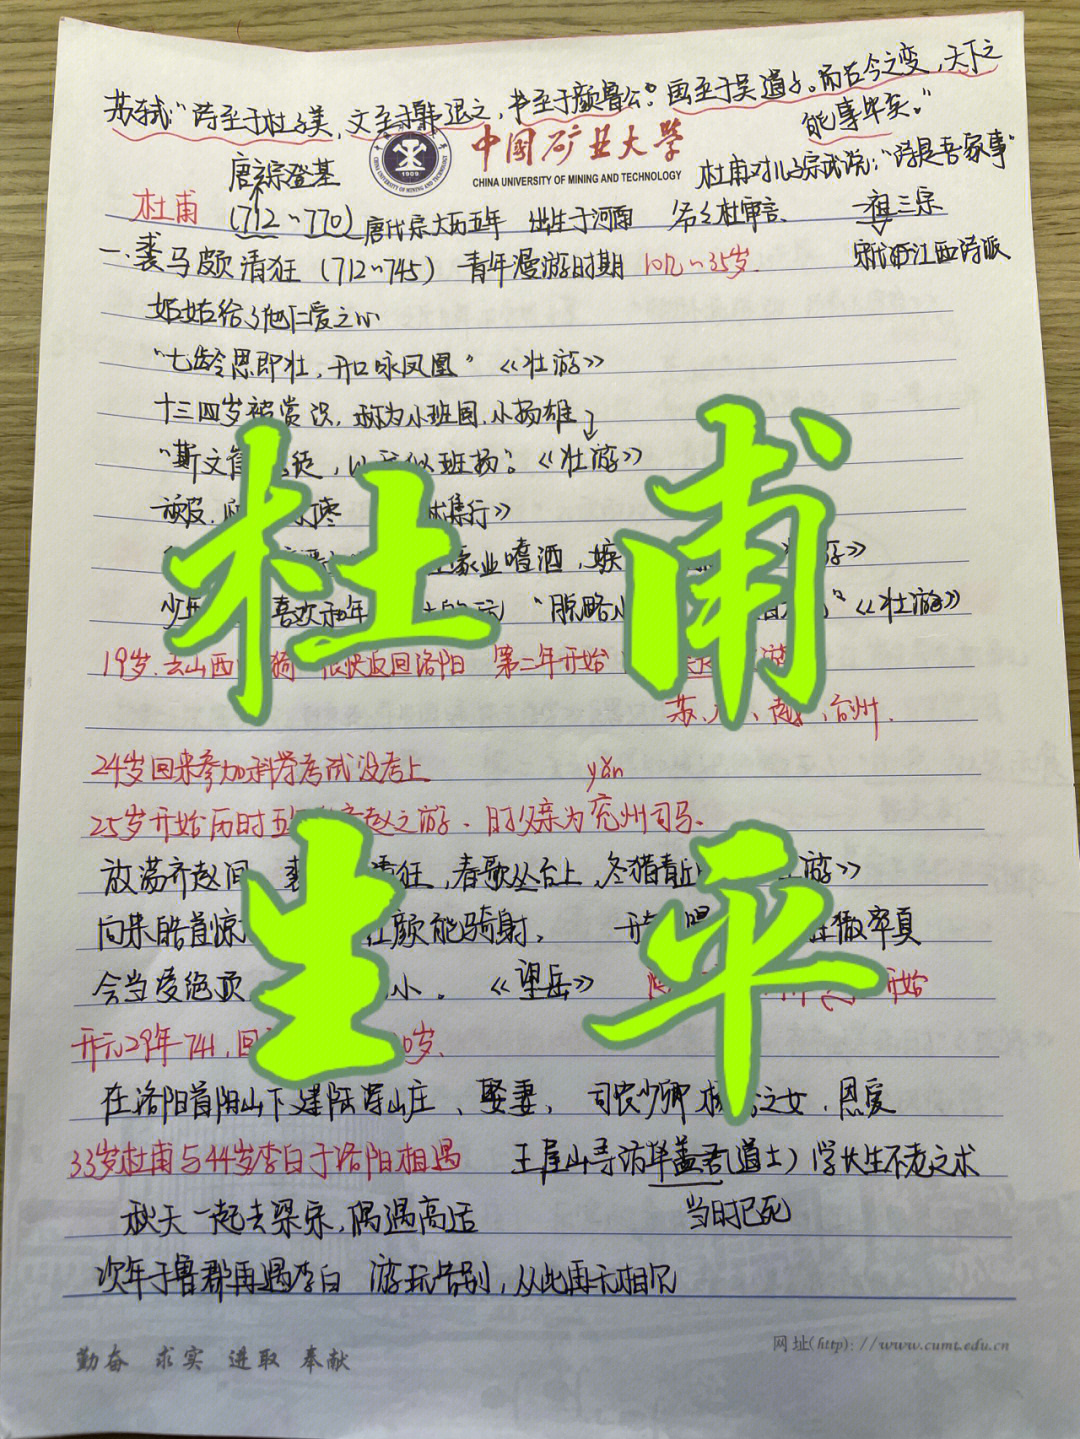 苏轼:"诗至于杜子美,文至于韩退之,书至于颜鲁公。画至于吴道子。而古今之变,天下之
能事毕矣。"
中国矿业大学
CHINA UNIVERSITY OF MINING AND TECHNOLOGY
1909
唐玄宗登基
杜甫对儿子宗武说:"诗是吾家事"
杜甫 (712~770) 唐代宗大历五年 出生于河南 爷爷杜审言 一祖三宗
一、裘马颇清狂 (712~745) 青年漫游时期 10几~35岁.
宋代江西诗派
姑姑给了他仁爱之心
"七龄思即壮,开口咏凤凰" 《壮游》
十三四岁被赏识,称为小班固,小扬雄
"斯文 似班扬"。《壮游》
集行》
业嗜酒,嫉 》
少 喜欢和年 "脱略小 "《壮游》
19岁.去山西 很快返回洛阳 第二年开始
苏、 、越、台州.
24岁回来参加科学考试没考上
yǎn
25岁开始历时五 赵之游、时父亲为兖州司马.
放荡齐赵间 清狂,春歌丛台上,冬猎青丘 游》
向来皓首惊 红颜能骑射, 狂傲率真
会当凌绝顶 小. 《望岳》 开始
开元29年741,回 0岁.
在洛阳首阳山下建陆浑山庄、娶妻, 司农少卿 之女,恩爱
33岁杜甫与44岁李白于洛阳相遇 王屋山寻访华盖君(道士)学长生不老之术
秋天一起去梁宋,偶遇高适 当时已死
次年于鲁郡再遇李白 游玩告别,从此再无相见
杜甫
生平
勤奋 求实 进取 奉献
网址(http)://www.cumt.edu.cn